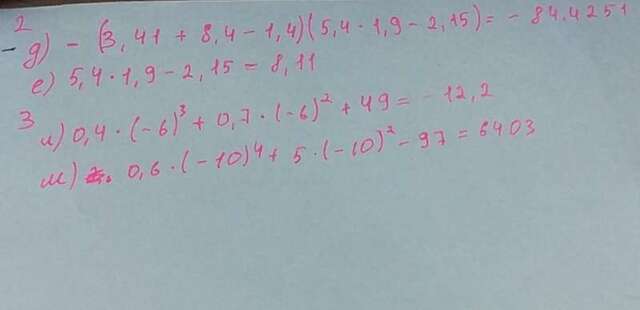 2
- д) - (3,41 + 8,4 - 1,4)(5,4 · 1,9 - 2,15) = - 84.4251
е) 5,4 · 1,9 - 2,15 = 8,11
3
л) 0,4 · (-6)³ + 0,7 · (-6)² + 49 = - 12,2
м) 0,6 · (-10)⁴ + 5 · (-10)² - 97 = 6403